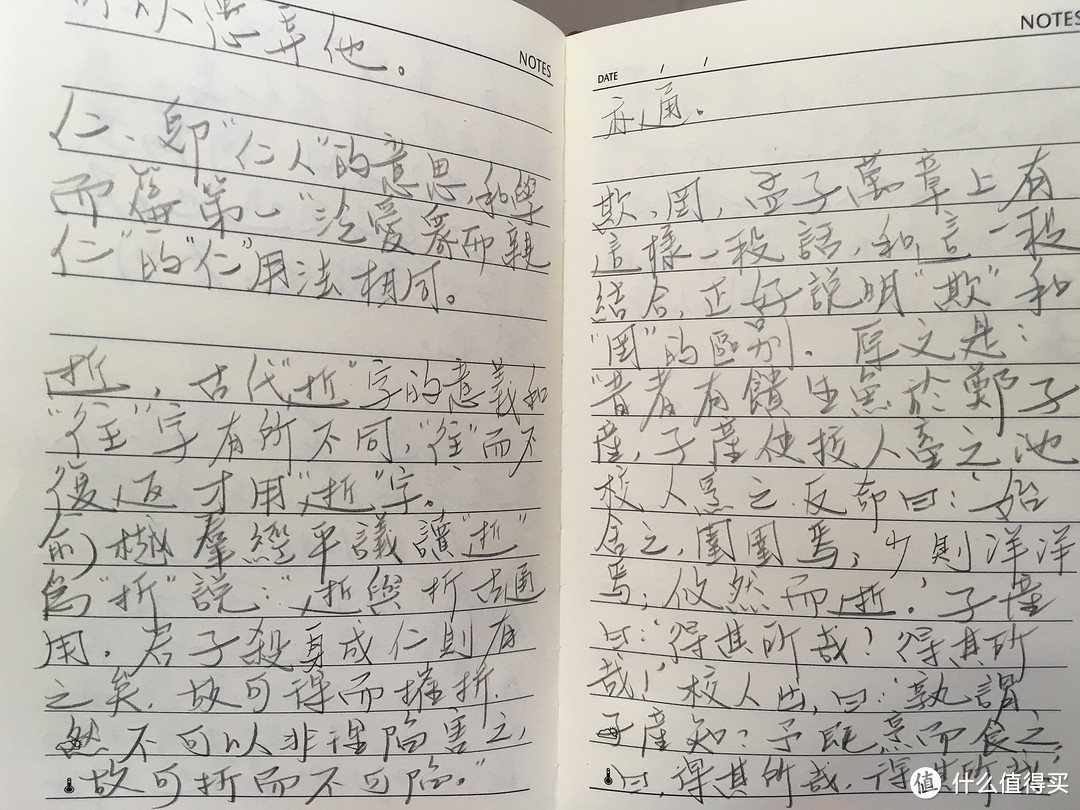 可以愚弄他。
NOTES
仁、即"仁人"的意思,和學
而篇第一"汎愛衆而親
仁"的"仁"用法相同。
逝，古代"逝"字的意義和
"往"字有所不同,"往"而不
復返才用"逝"字。
俞樾羣經平議讀"逝"
爲"折"說:"逝與折古通
用.君子殺身成仁則有
之矣.故可得而摧折.
然不可以非理陷害之,
故可折而不可陷."
NOTES
DATE / /
亦通。
欺、罔，孟子萬章上有
這樣一段話,和這一段
結合,正好說明"欺"和
"罔"的區別.原文是:
"昔者有饋生魚於鄭子
產,子產使校人畜之池
校人烹之.反命曰:'始
舍之,圉圉焉;少則洋洋
焉;攸然而逝.'子產
曰:'得其所哉!得其所
哉!'校人出,曰:'孰謂
子產知?予既烹而食之,
曰,得其所哉,得其所哉.'
值 什么值得买